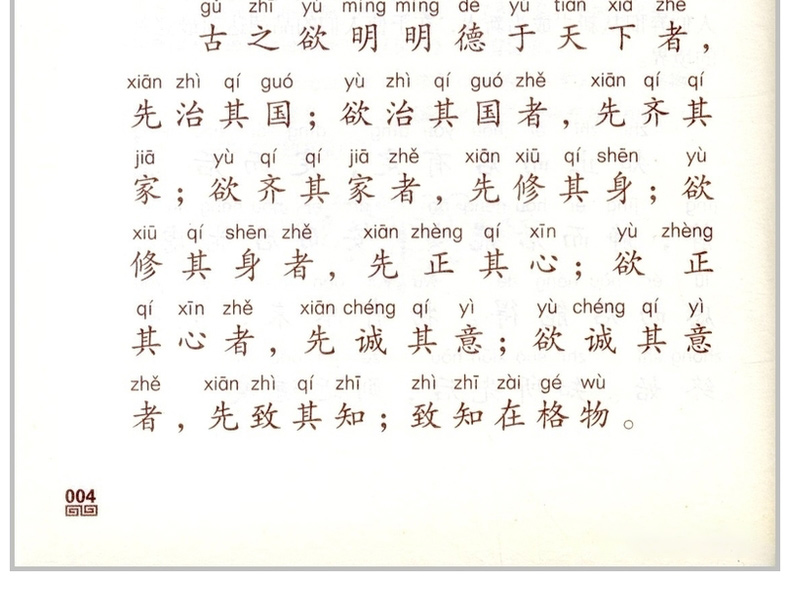 gǔ zhī yù míng míng dé yú tiān xià zhě
古之欲明明德于天下者，
xiān zhì qí guó yù zhì qí guó zhě xiān qí qí
先治其国；欲治其国者，先齐其
jiā yù qí qí jiā zhě xiān xiū qí shēn yù
家；欲齐其家者，先修其身；欲
xiū qí shēn zhě xiān zhèng qí xīn yù zhèng
修其身者，先正其心；欲正
qí xīn zhě xiān chéng qí yì yù chéng qí yì
其心者，先诚其意；欲诚其意
zhě xiān zhì qí zhī zhì zhī zài gé wù
者，先致其知；致知在格物。
004